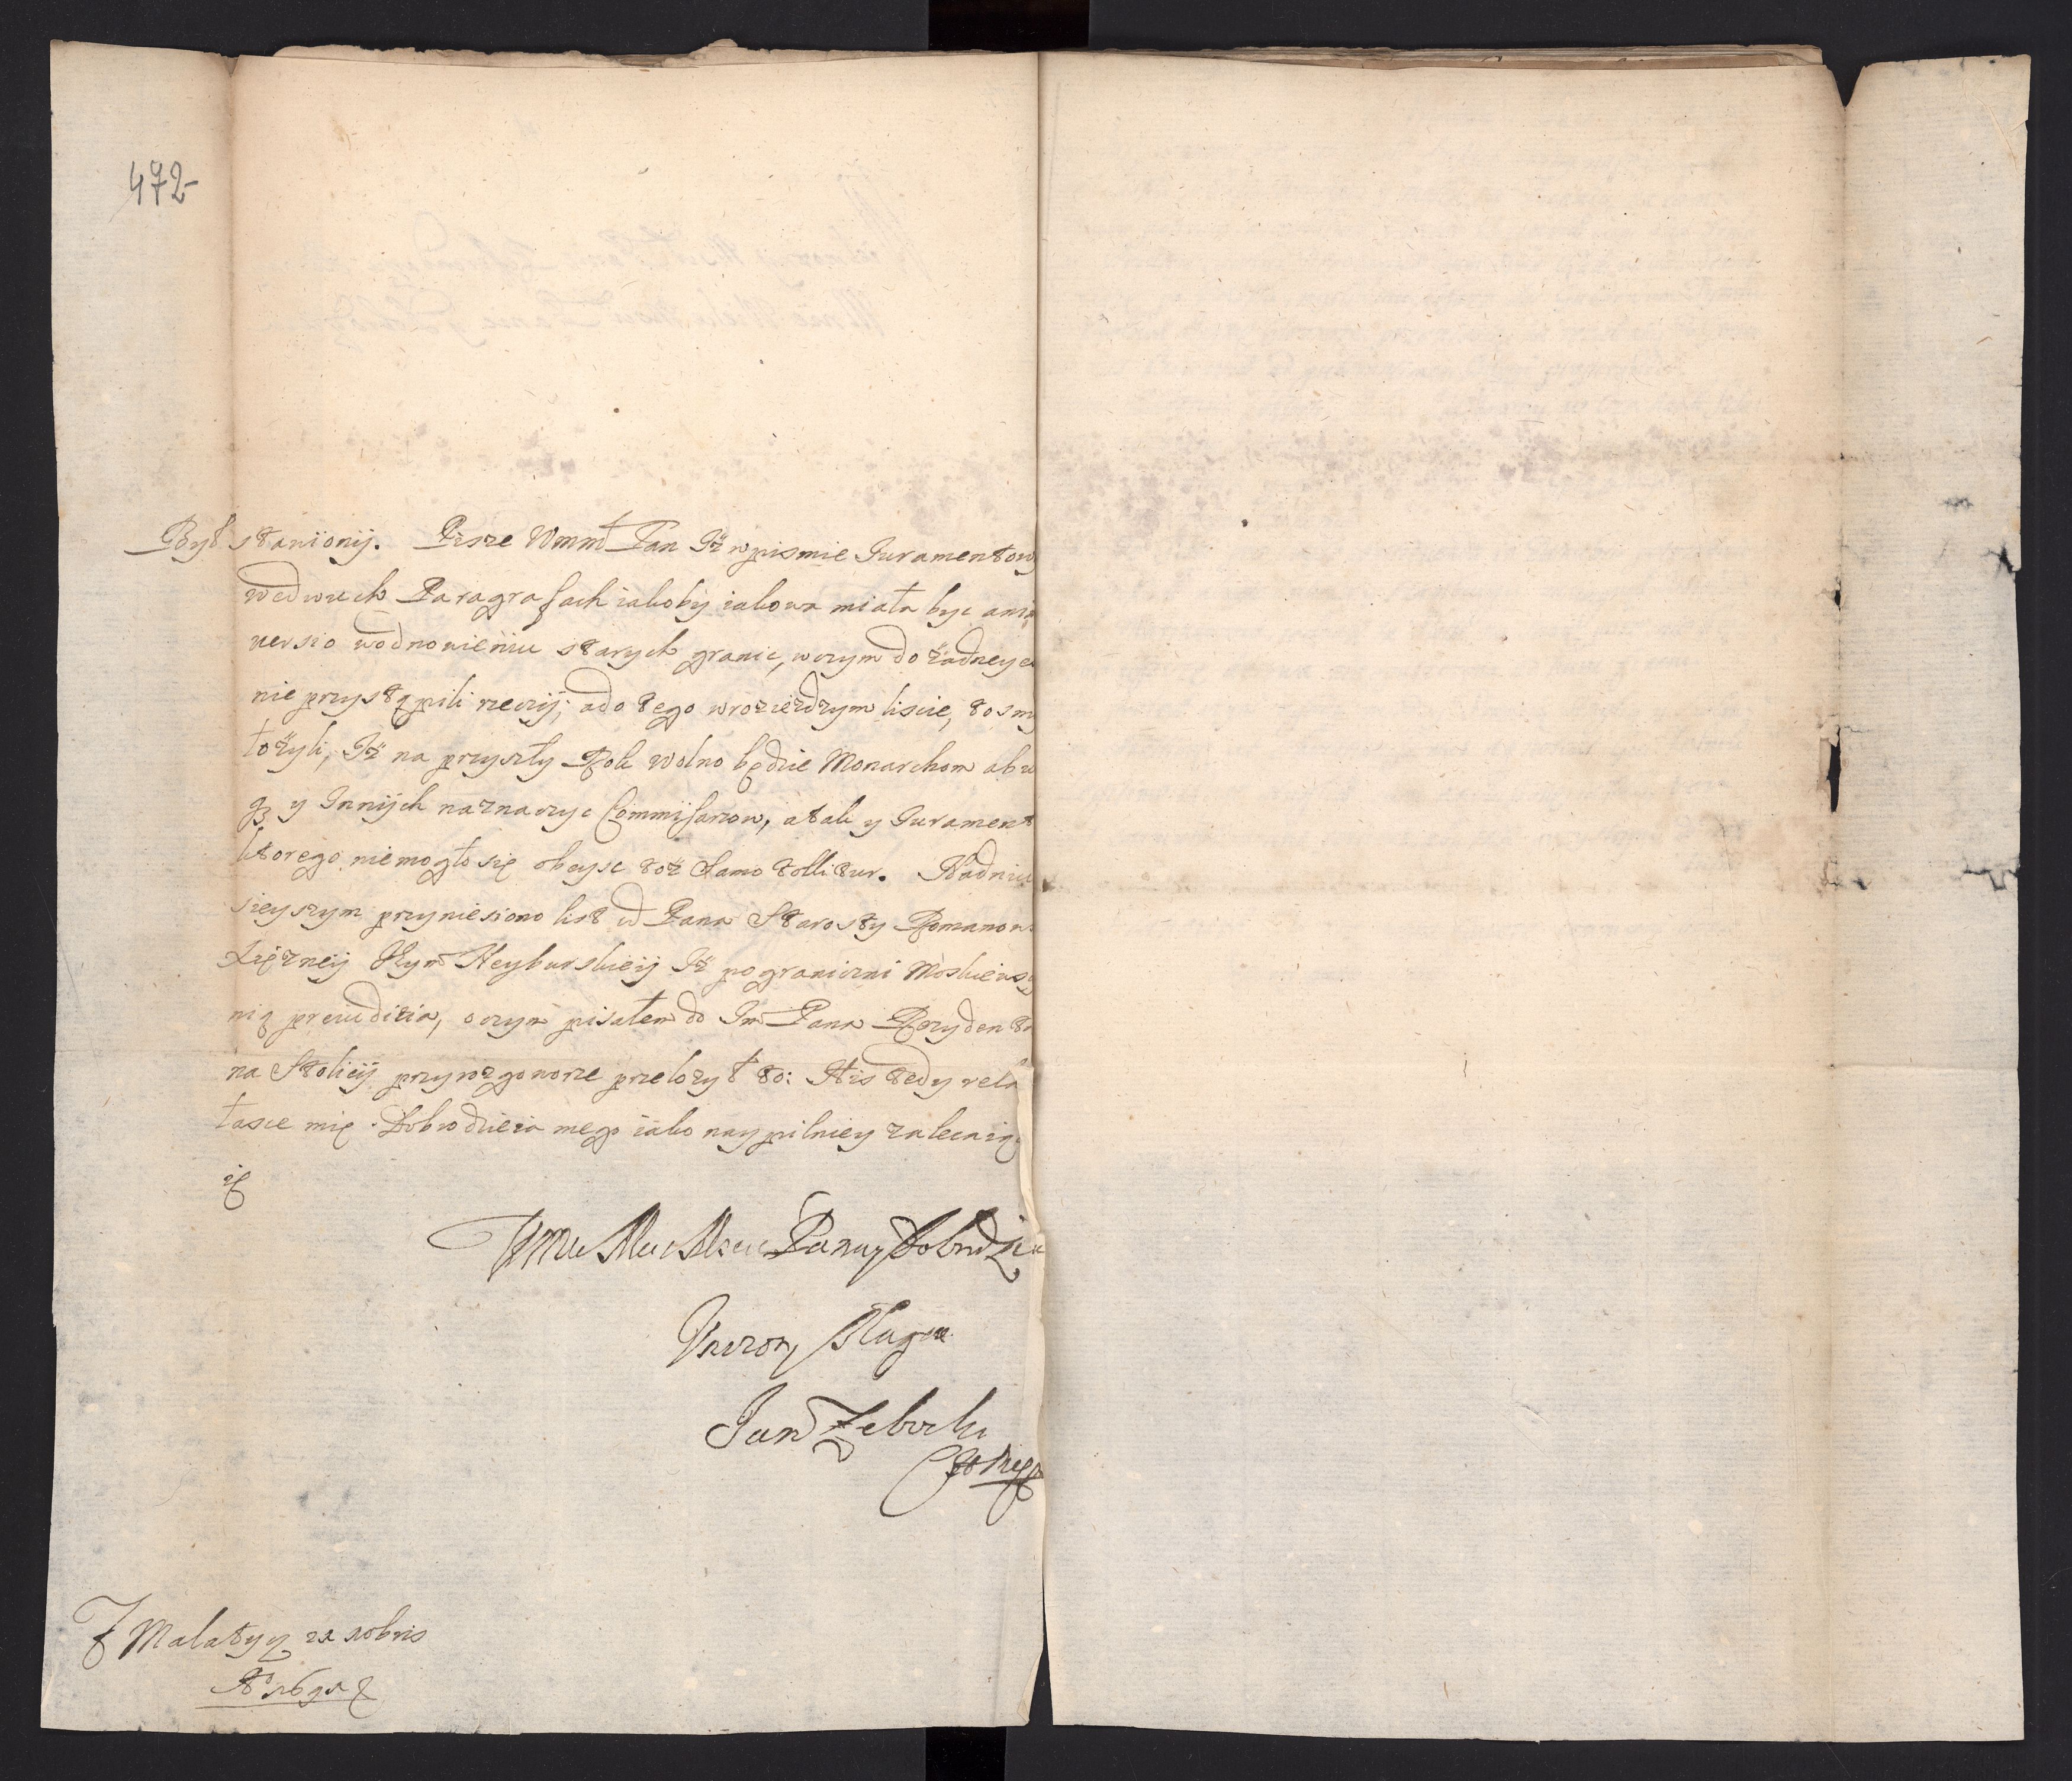 472
Być stanionij. Pisze Wmm Pan Iż w pismie Juramentow
wedwuch Paragrafach iakoby iakowa miała byc ani
uersio wodnowieniu starych granic, wczym do żadney
nie przystąpili rzeczij; ado tego wrozieżdzym liscie, to smy
łożyli, Iż na przyszły Rok wolno będzie Monarchom abo
y Innijch naznaczyc Commissarzow, atak y Jurament
ktorego niemogło się obeysc toż samo tollitur. Nadniu
sieyszym przyniesiono list od Pana Starosty Romanow
Xiężneij Neyburskieij Iż pograniczni Moskiewscy
nią preiudicia, oczym pisałem do Im Pana Rezydenta
na Stolicij przyrozgoworze przelozył to: His tedy rela
łasce mię Dobrodzieia mego iako naypilniey zalecaiąc
ię
Pana y Dobrodzie
Unizony Sługa
Jan
Z Malaty 21 xobris
A° 1691